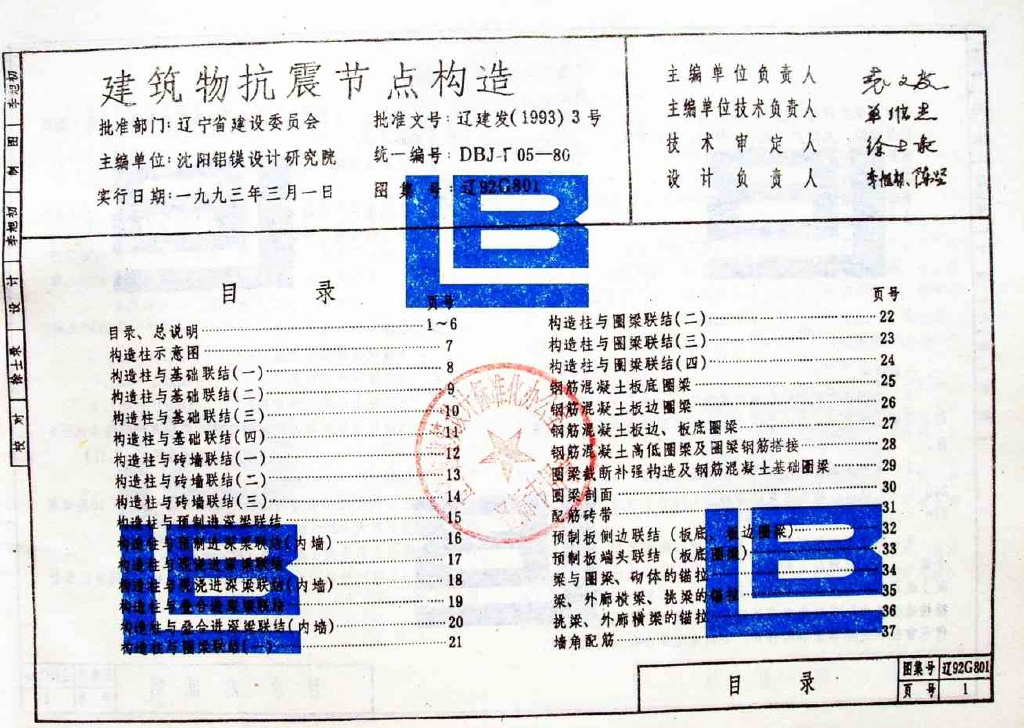 建筑物抗震节点构造
批准部门:辽宁省建设委员会
主编单位:沈阳铝镁设计研究院
实行日期:一九九三年三月一日
批准文号:辽建发(1993)3号
统一编号:DBJ-T05—86
图集号:辽92G801
主编单位负责人
主编单位技术负责人
技术审定人
设计负责人
制图 李旭初
设计 李旭初
校对 徐士永
目录
页号
目录、总说明 1~6
构造柱示意图 7
构造柱与基础联结(一) 8
构造柱与基础联结(二) 9
构造柱与基础联结(三) 10
构造柱与基础联结(四) 11
构造柱与砖墙联结(一) 12
构造柱与砖墙联结(二) 13
构造柱与砖墙联结(三) 14
构造柱与预制进深梁联结 15
构造柱与预制进深梁联结(内墙) 16
构造柱与现浇进深梁联结 17
构造柱与现浇进深梁联结(内墙) 18
构造柱与叠合进深梁联结 19
构造柱与叠合进深梁联结(内墙) 20
构造柱与圈梁联结(一) 21
页号
构造柱与圈梁联结(二) 22
构造柱与圈梁联结(三) 23
构造柱与圈梁联结(四) 24
钢筋混凝土板底圈梁 25
钢筋混凝土板边圈梁 26
钢筋混凝土板边、板底圈梁 27
钢筋混凝土高低圈梁及圈梁钢筋搭接 28
圈梁截断补强构造及钢筋混凝土基础圈梁 29
圈梁剖面 30
配筋砖带 31
预制板侧边联结(板底、板边圈梁) 32
预制板端头联结(板底圈梁) 33
梁与圈梁、砌体的锚拉 34
梁、外廊横梁、挑梁的锚拉 35
挑梁、外廊横梁的锚拉 36
墙角配筋 37
目录
图集号 辽92G801
页号 1